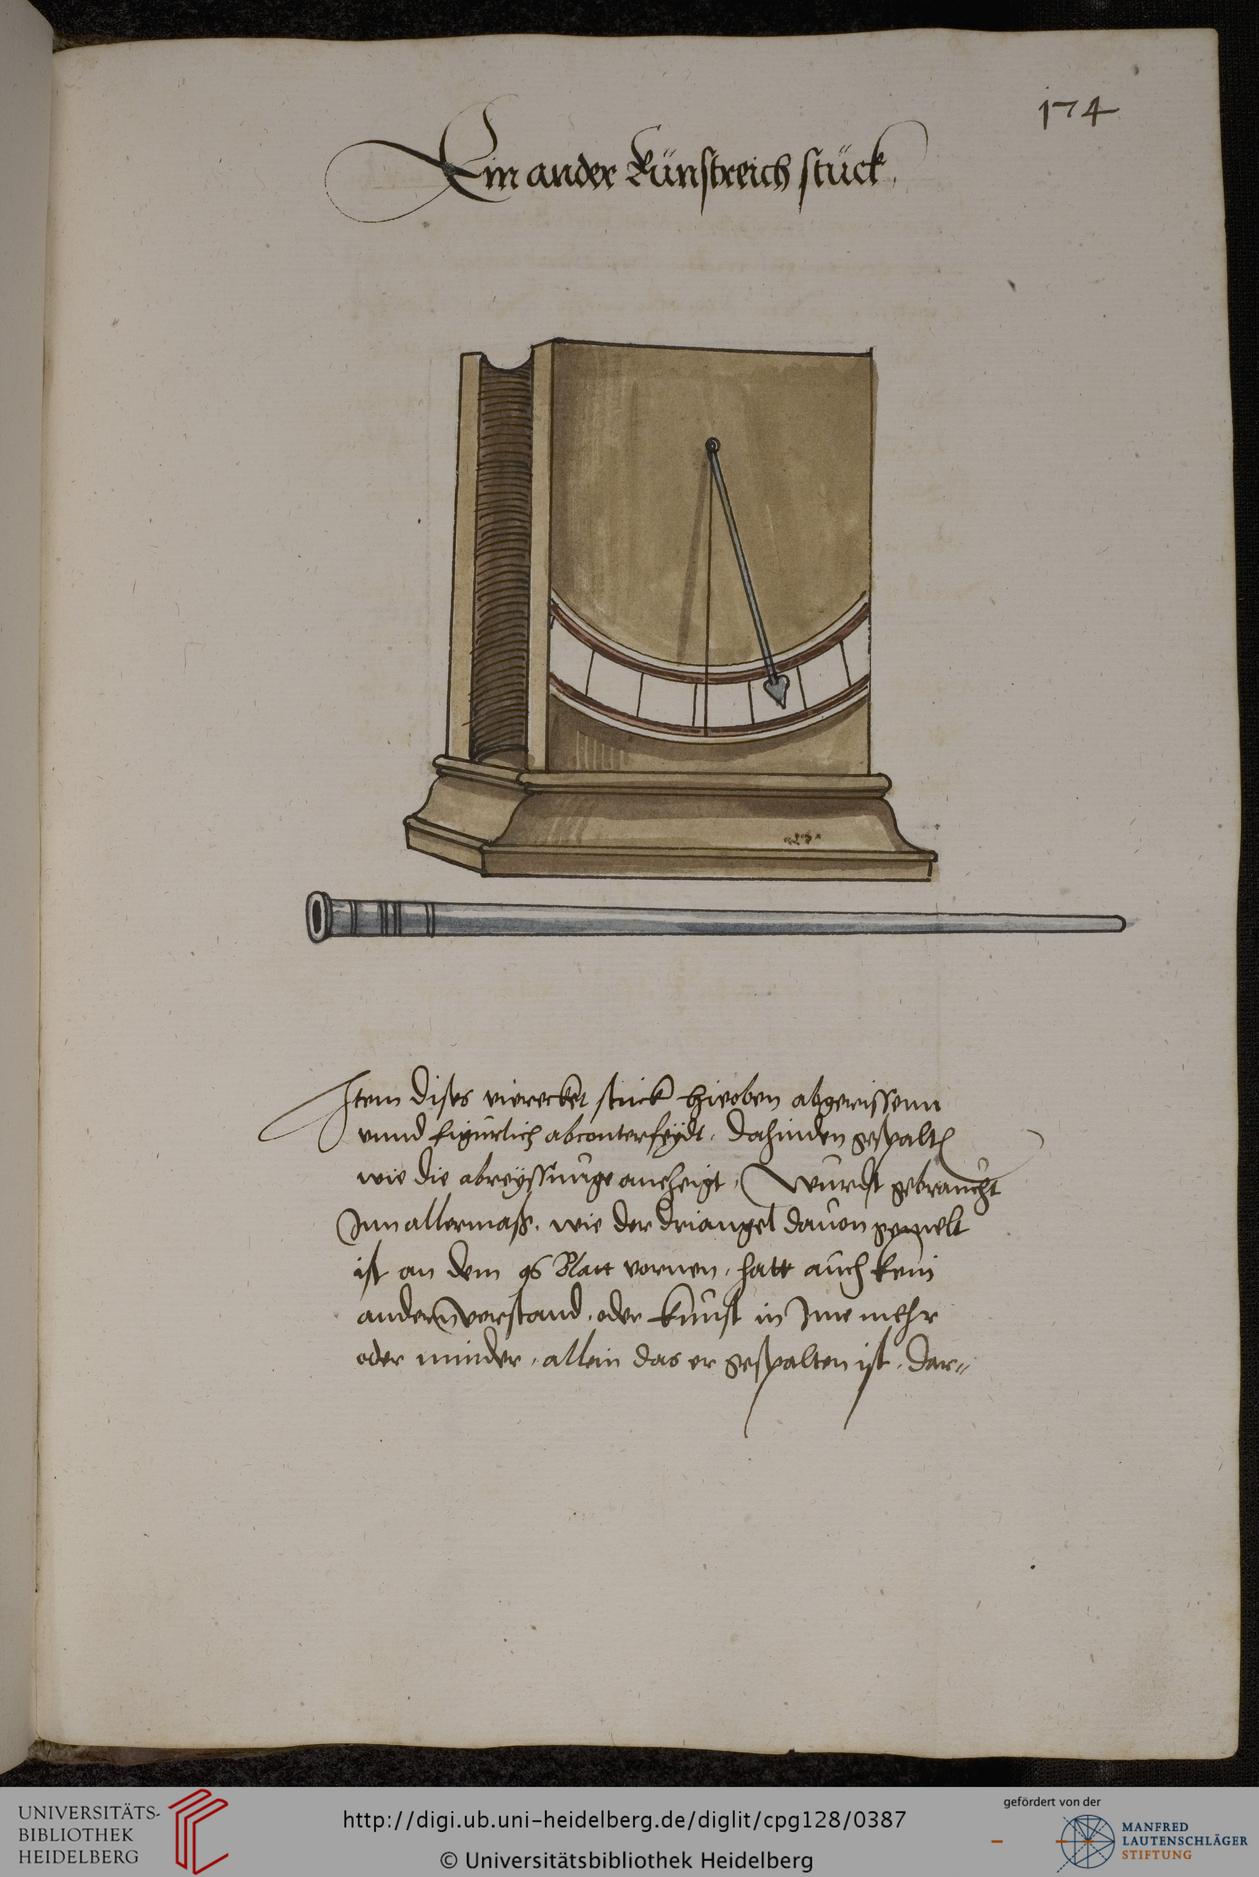 174
Ein ander künstreich stück.
Item dises vierecket stück hieoben abgerissenn
vnnd figürlich abconterfeydt, dahinden gespalten
wie die abreyssunge anzeigt, Wurdt gebraucht
Inn allermaß, wie der driangel dauon gemelt
ist an dem 96 Blatt vornen, hatt auch kein
andern verstand, oder kunst in Ime mehr
oder minder, allein das er gespalten ist, dar=
UNIVERSITÄTS-
BIBLIOTHEK
HEIDELBERG
http://digi.ub.uni-heidelberg.de/diglit/cpg128/0387
© Universitätsbibliothek Heidelberg
gefördert von der
MANFRED
LAUTENSCHLÄGER
STIFTUNG